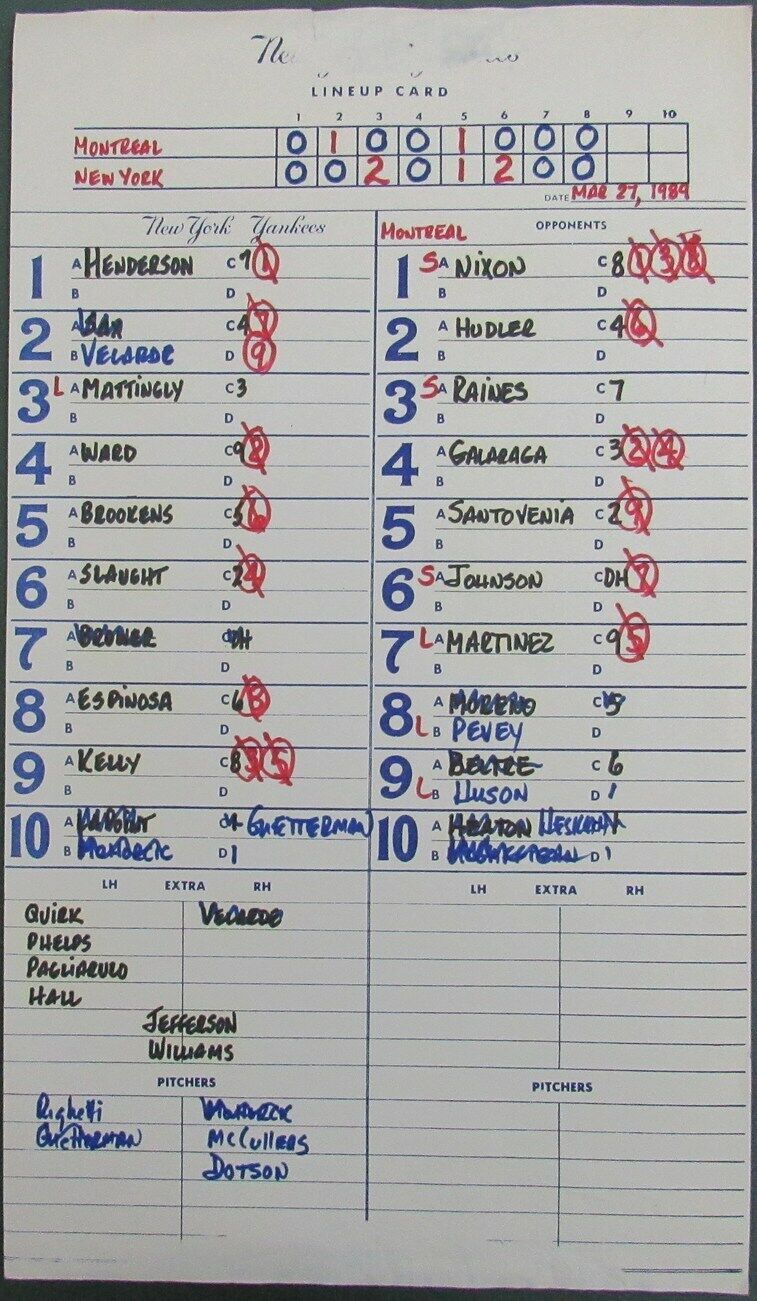 LINEUP CARD
1 2 3 4 5 6 7 8 9 10
MONTREAL 0 1 0 0 1 0 0 0
NEW YORK 0 0 2 0 1 2 0 0
DATE MAR 27, 1989
New York Yankees
MONTREAL OPPONENTS
1 A HENDERSON C 7 1
B D
2 A C 4 7
B VELARDE D 9
3 L A MATTINGLY C 3
B D
4 A WARD C 9 2
B D
5 A BROOKENS C 5 6
B D
6 A SLAUGHT C 2 4
B D
7 A C DH
B D
8 A ESPINOSA C 6 3
B D
9 A KELLY C 8 3 5
B D
10 A GUETTERMAN
B D 1
1 S A NIXON C 8 1 3 8
B D
2 A HUDLER C 4 6
B D
3 S A RAINES C 7
B D
4 A GALARAGA C 3 2 4
B D
5 A SANTOVENIA C 2 9
B D
6 S A JOHNSON C DH 7
B D
7 L A MARTINEZ C 9 5
B D
8 A MORENO C 5
L B PEVEY D
9 A BELTRE C 6
L B HUSON D 1
10 A HEATON HESKETH 1
B D 1
LH EXTRA RH
QUIRK VELARDE
PHELPS
PAGLIARULO
HALL
JEFFERSON
WILLIAMS
PITCHERS
Righetti
GUETTERMAN McCULLERS
DOTSON
LH EXTRA RH
PITCHERS